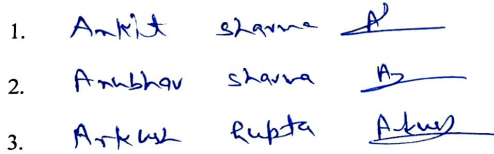 1. Ankit Sharma
2. Anubhav Sharma
3. Gupta